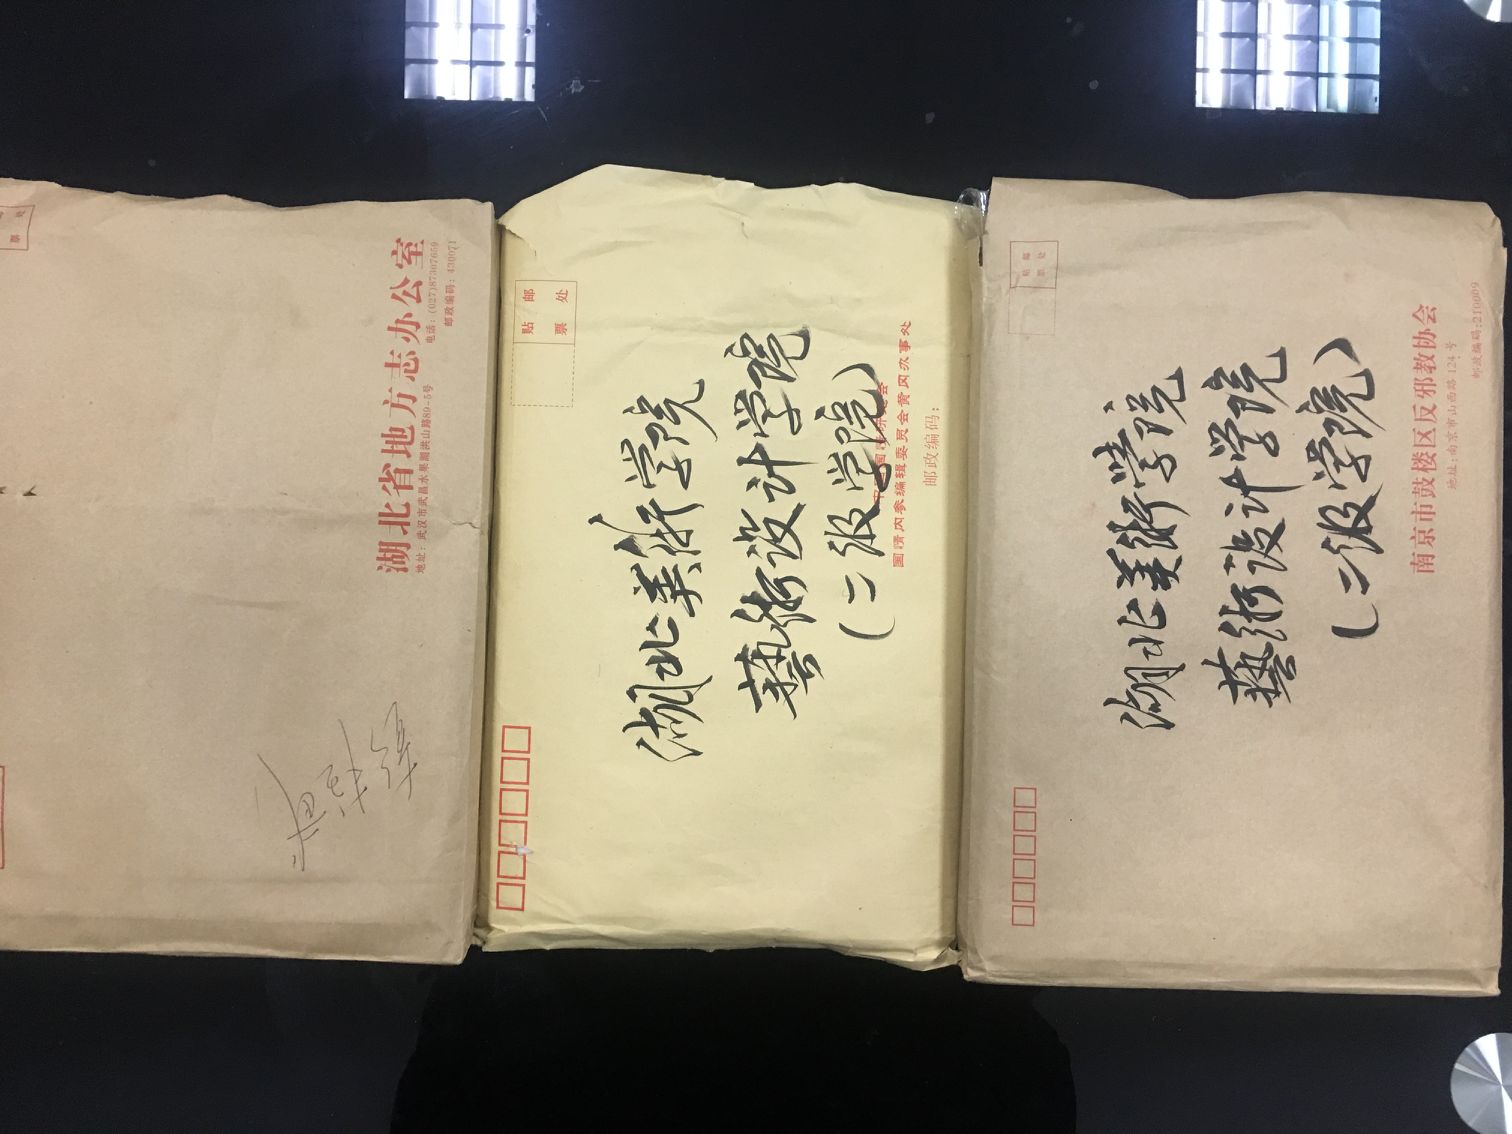 湖北省地方志办公室
地址：武汉市武昌水果湖洪山路89-5号
电话：(027)87307659
邮政编码：430071
贴 邮
票 处
湖北美术学院
藝術设计学院
(二级学院)
国情内参编辑委员会黄冈办事处
邮政编码：
贴 邮
票 处
湖北美術学院
藝術设计学院
(二级学院)
南京市鼓楼区反邪教协会
地址:南京市山西路124号
邮政编码:210009